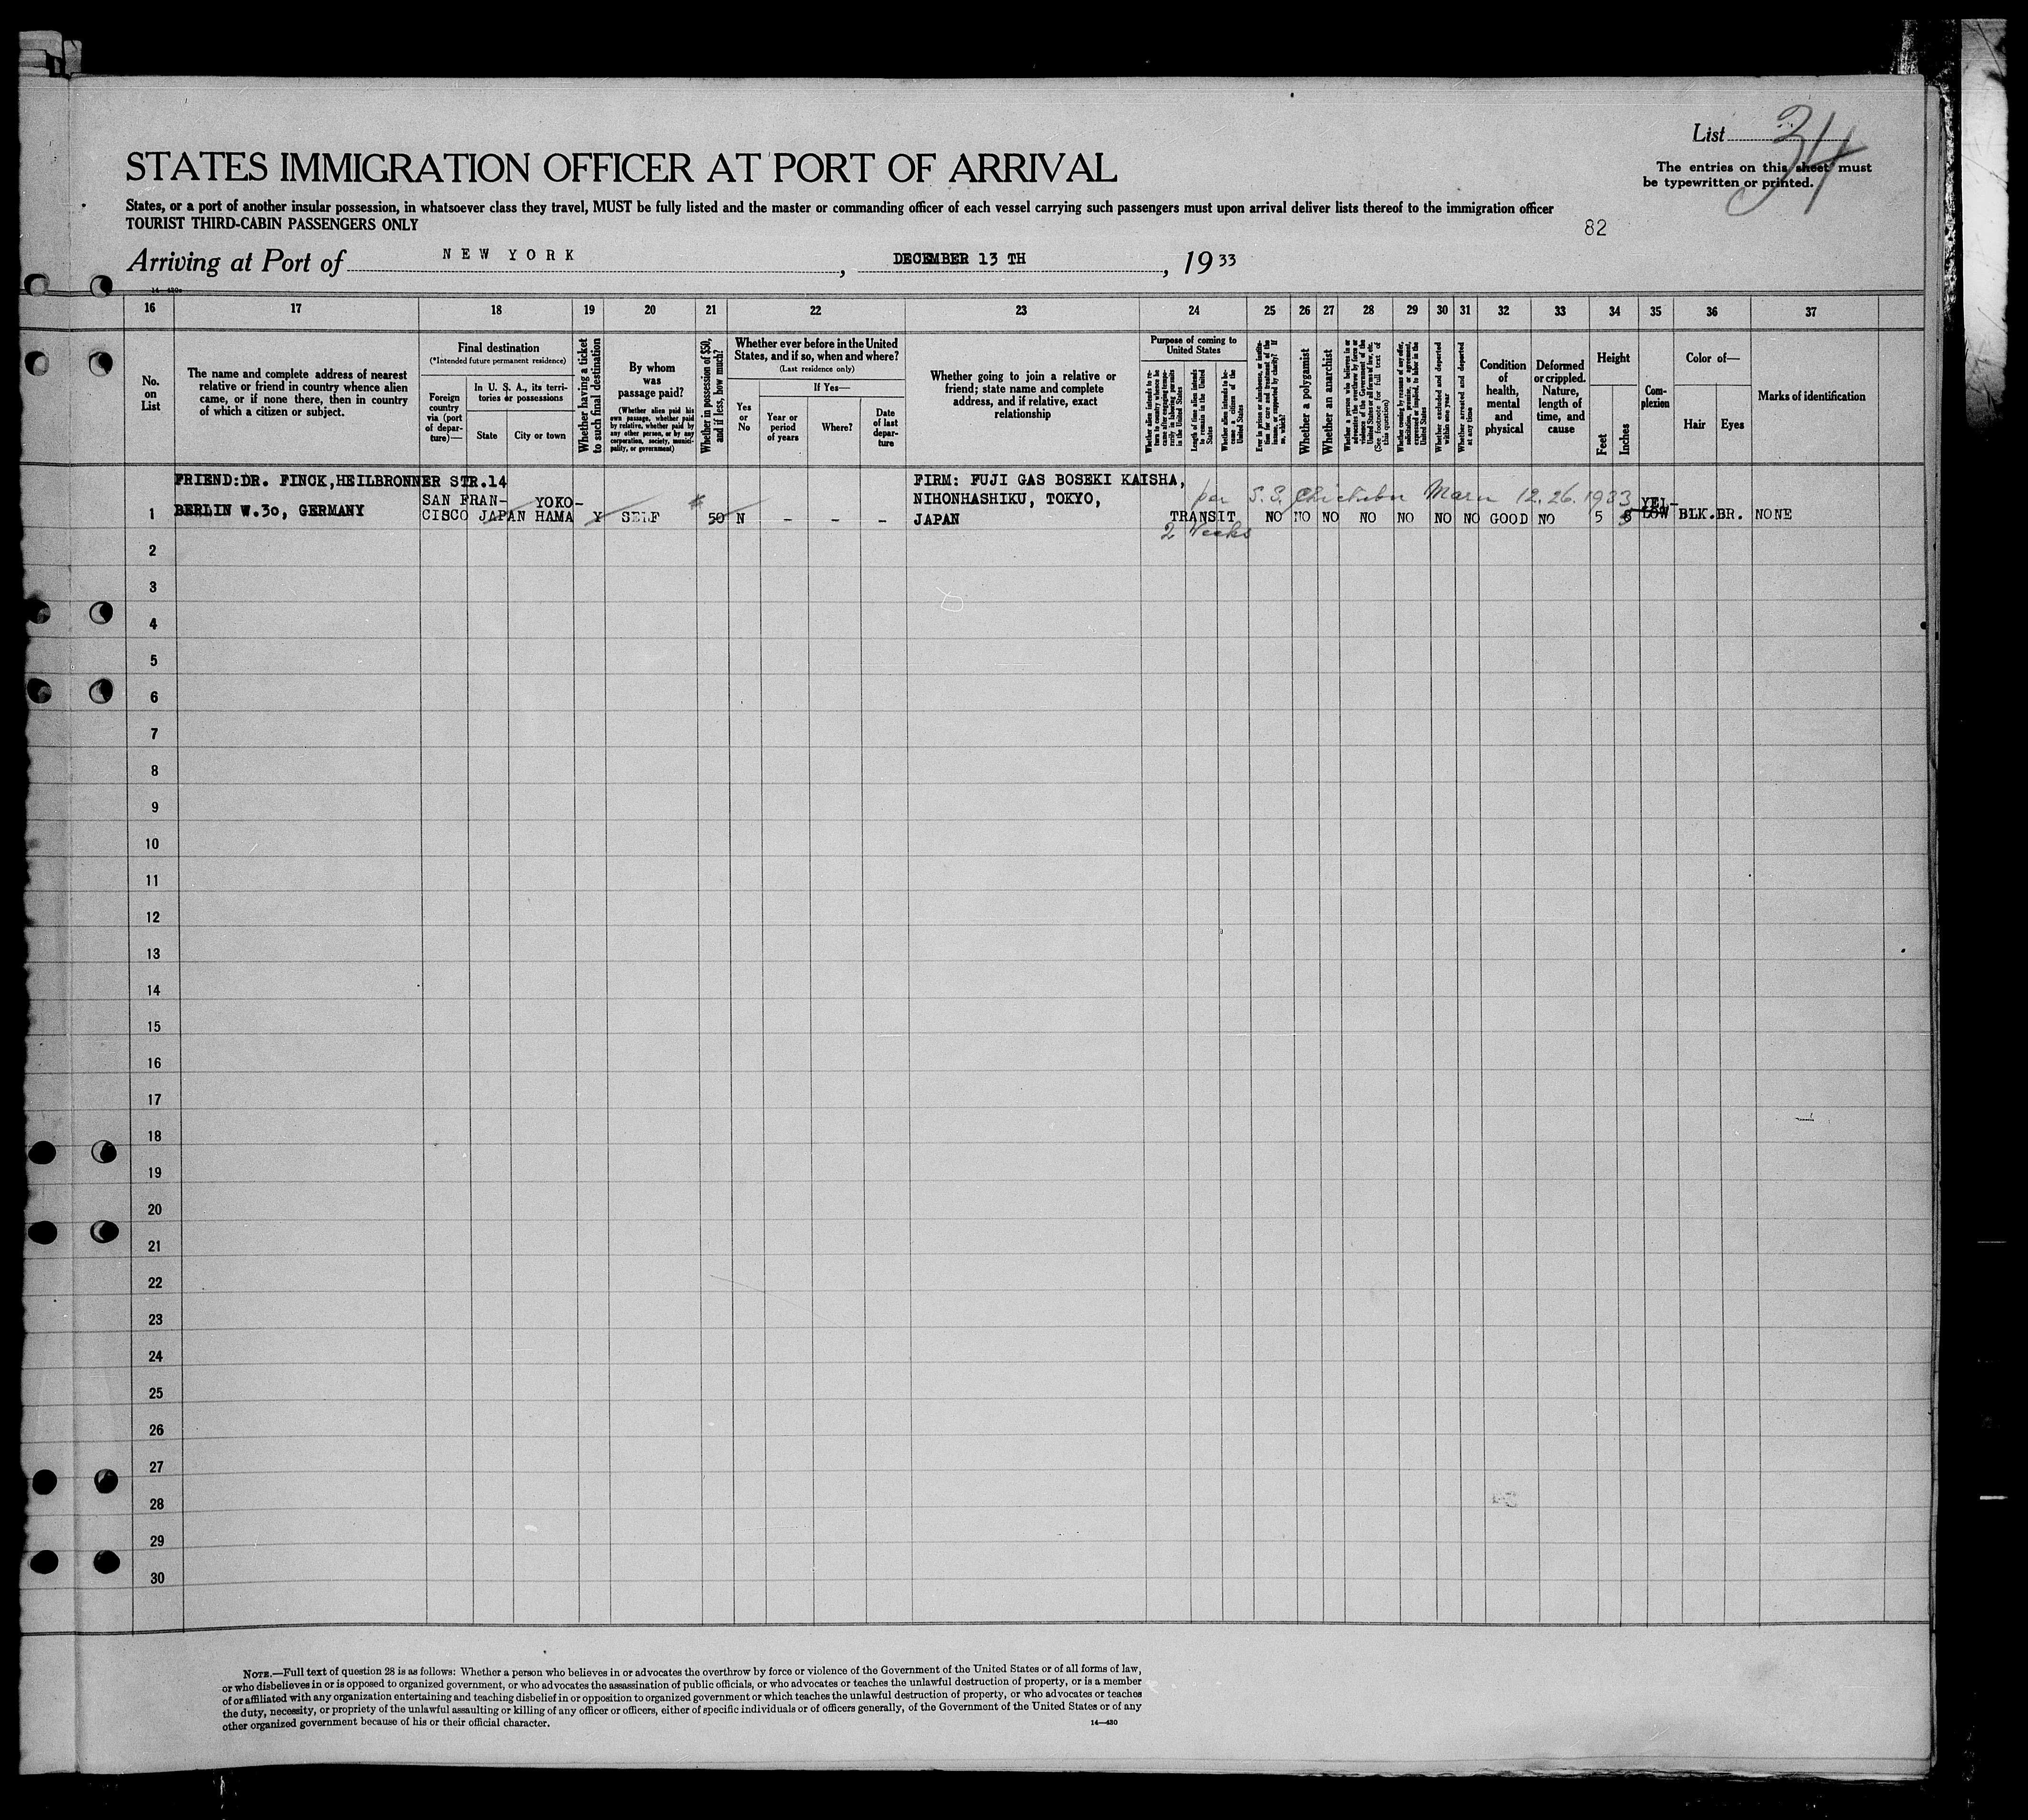 List 34
The entries on this sheet must
be typewritten or printed.
STATES IMMIGRATION OFFICER AT PORT OF ARRIVAL
States, or a port of another insular possession, in whatsoever class they travel, MUST be fully listed and the master or commanding officer of each vessel carrying such passengers must upon arrival deliver lists thereof to the immigration officer
TOURIST THIRD-CABIN PASSENGERS ONLY
82
Arriving at Port of NEW YORK, DECEMBER 13 TH, 1933
16 17 18 19 20 21 22 23 24 25 26 27 28 29 30 31 32 33 34 35 36 37
No.
on
List
The name and complete address of nearest
relative or friend in country whence alien
came, or if none there, then in country
of which a citizen or subject.
Final destination
(*Intended future permanent residence)
Foreign
country
via (port
of depar-
ture)—
In U. S. A., its terri-
tories or possessions
State
City or town
Whether having a ticket
to such final destination
By whom
was
passage paid?
(Whether alien paid his
own passage, whether paid
by relative, whether paid by
any other person, or by any
corporation, society, munici-
pality, or government)
Whether in possession of $50,
and if less, how much?
Whether ever before in the United
States, and if so, when and where?
(Last residence only)
Yes
or
No
If Yes—
Year or
period
of years
Where?
Date
of last
depar-
ture
Whether going to join a relative or
friend; state name and complete
address, and if relative, exact
relationship
Purpose of coming to
United States
Whether alien intends to re-
turn to country whence he
came after engaging tempo-
rarily in laboring pursuits
in the United States
Length of time alien intends
to remain in the United
States
Whether alien intends to be-
come a citizen of the
United States
Ever in prison or almshouse, or institu-
tion for care and treatment of the
insane, or supported by charity? If
so, which?
Whether a polygamist
Whether an anarchist
Whether a person who believes in or
advocates the overthrow by force or
violence of the Government of the
United States or all forms of law, etc.
(See footnote for full text of
this question)
Whether coming by reason of any offer,
solicitation, promise, or agreement,
expressed or implied, to labor in the
United States
Whether excluded and deported
within one year
Whether arrested and deported
at any time
Condition
of
health,
mental
and
physical
Deformed
or crippled.
Nature,
length of
time, and
cause
Height
Feet
Inches
Com-
plexion
Color of—
Hair
Eyes
Marks of identification
FRIEND:DR. FINCK,HEILBRONNER STR.14
BERLIN W.30, GERMANY
SAN FRAN- YOKO-
1 CISCO JAPAN HAMA Y SELF $ 50 N - - -
FIRM: FUJI GAS BOSEKI KAISHA,
NIHONHASHIKU, TOKYO,
JAPAN
per S.S. Chichibu Maru 12.26.1933
YEL-
TRANSIT NO NO NO NO NO NO NO GOOD NO 5 LOW BLK.BR. NONE
2 Weeks
2
3
4
5
6
7
8
9
10
11
12
13
14
15
16
17
18
19
20
21
22
23
24
25
26
27
28
29
30
NOTE.—Full text of question 28 is as follows: Whether a person who believes in or advocates the overthrow by force or violence of the Government of the United States or of all forms of law,
or who disbelieves in or is opposed to organized government, or who advocates the assassination of public officials, or who advocates or teaches the unlawful destruction of property, or is a member
of or affiliated with any organization entertaining and teaching disbelief in or opposition to organized government or which teaches the unlawful destruction of property, or who advocates or teaches
the duty, necessity, or propriety of the unlawful assaulting or killing of any officer or officers, either of specific individuals or of officers generally, of the Government of the United States or of any
other organized government because of his or their official character.
14—430